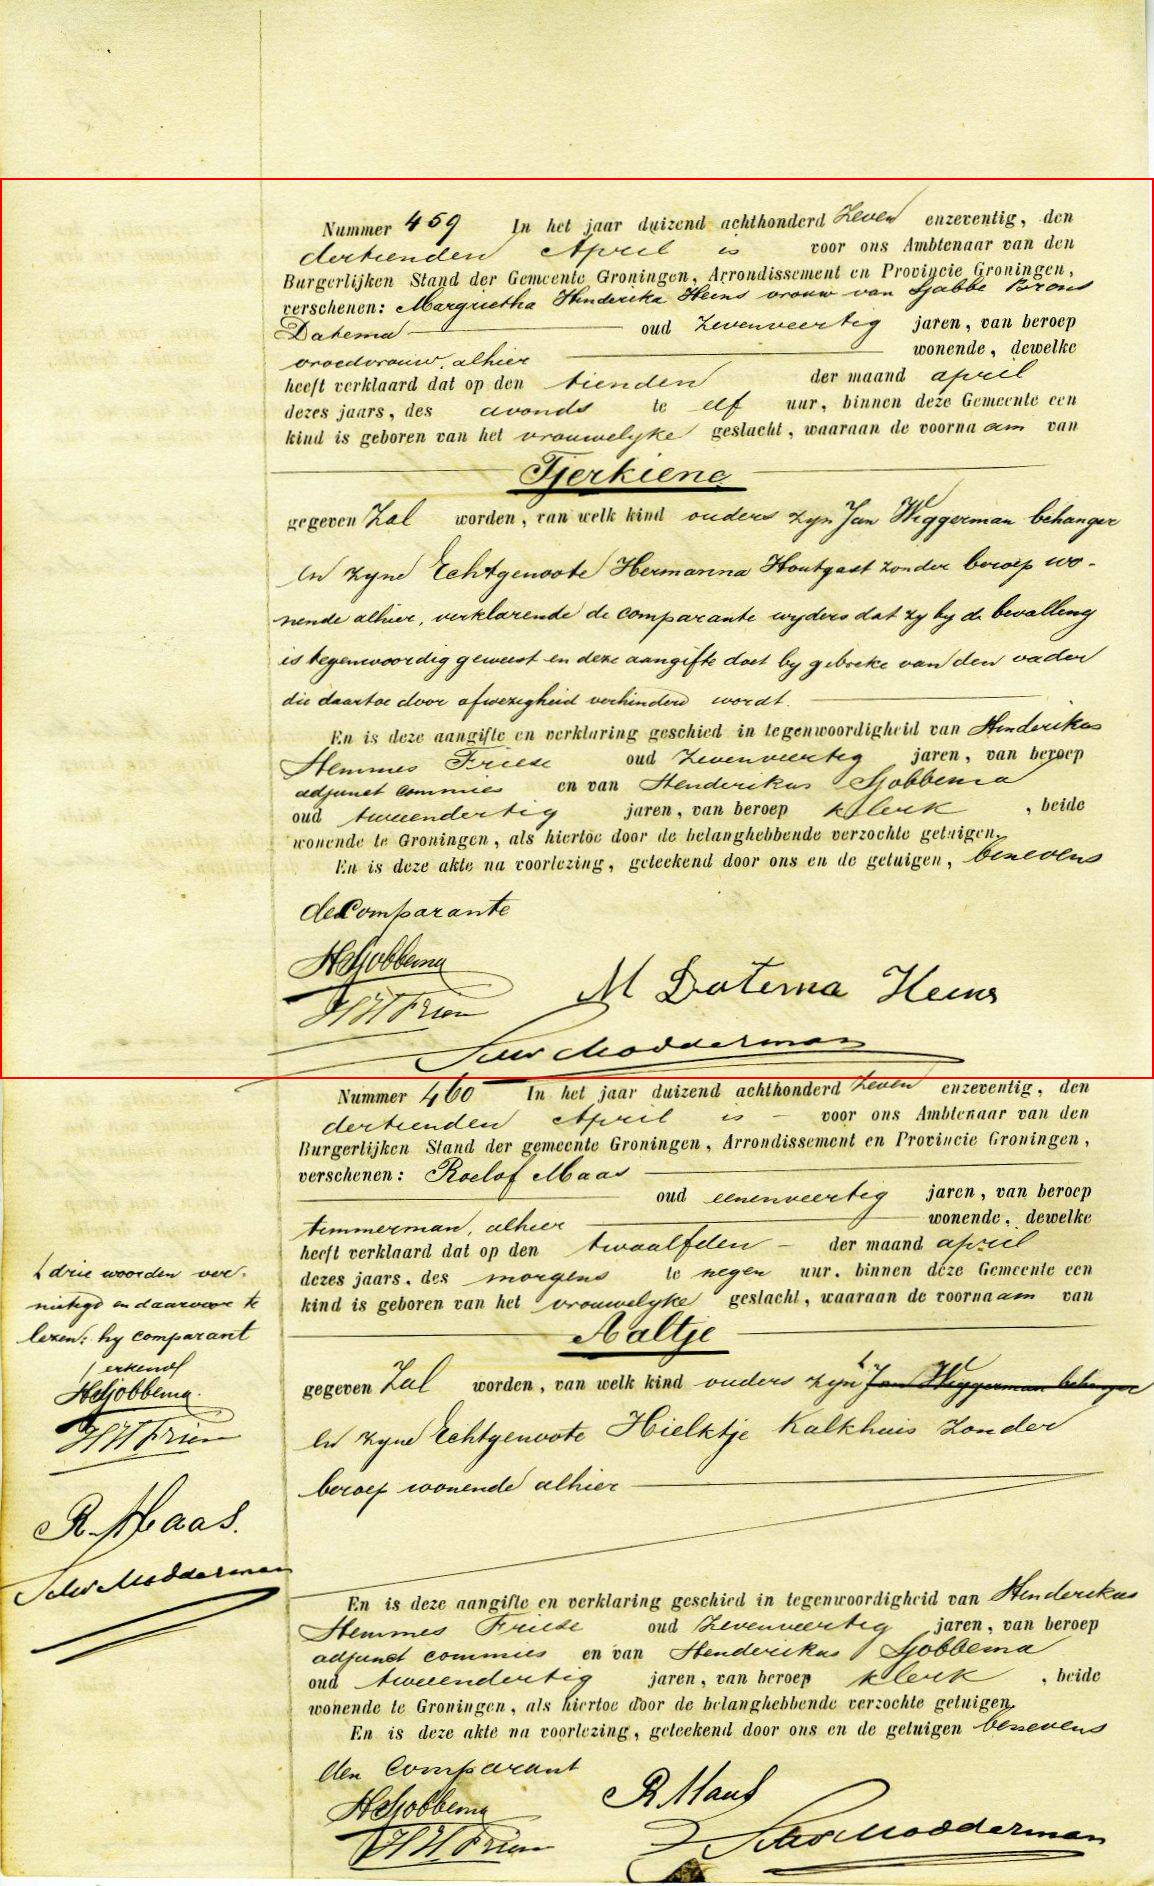 Nummer 459 In het jaar duizend achthonderd Zeven enzeventig, den
dertienden April is voor ons Ambtenaar van den
Burgerlijken Stand der Gemeente Groningen, Arrondissement en Provincie Groningen,
verschenen: Margrietha Henderika Heins vrouw van Sjabbe Brons
Datema oud Zevenveertig jaren, van beroep
vroedvrouw, alhier wonende, dewelke
heeft verklaard dat op den tienden der maand april
dezes jaars, des avonds te elf uur, binnen deze Gemeente een
kind is geboren van het vrouwelyke geslacht, waaraan de voornaam van
Tjerkiene
gegeven Zal worden, van welk kind ouders zyn Jan Wiggerman behanger
En zyne Echtgenoote Hermanna Houtgast zonder beroep wo-
nende alhier, verklarende de comparante wyders dat zy by de bevalling
is tegenwoordig geweest en deze aangifte doet by gebreke van den vader
die daartoe door afwezigheid verhinderd wordt.
En is deze aangifte en verklaring geschied in tegenwoordigheid van Henderikus
Hemmes Friese oud Zevenveertig jaren, van beroep
adjunct commies en van Henderikus Sjobbema
oud tweeendertig jaren, van beroep klerk, beide
wonende te Groningen, als hiertoe door de belanghebbende verzochte getuigen.
En is deze akte na voorlezing, geteekend door ons en de getuigen, benevens
de Comparante
HSjobbema
M Datema Heins
HHFriese
Modderman
Nummer 460 In het jaar duizend achthonderd Zeven enzeventig, den
dertienden April is voor ons Ambtenaar van den
Burgerlijken Stand der gemeente Groningen, Arrondissement en Provincie Groningen,
verschenen: Roelof Maas
oud eenenveertig jaren, van beroep
timmerman, alhier wonende, dewelke
heeft verklaard dat op den twaalfden der maand april
dezes jaars, des morgens te negen uur, binnen deze Gemeente een
kind is geboren van het vrouwelyke geslacht, waaraan de voornaam van
Aaltje
gegeven Zal worden, van welk kind ouders zyn Jan Wiggerman behanger
En zyne Echtgenoote Hielktje Kalkhuis Zonder
beroep wonende alhier
drie woorden ver-
nietigd en daarvoor te
lezen: hy comparant
erkend
HSjobbema.
HHFriese
R. Maas.
Modderman
En is deze aangifte en verklaring geschied in tegenwoordigheid van Henderikus
Hemmes Friese oud Zevenveertig jaren, van beroep
adjunct commies en van Henderikus Sjobbema
oud tweeendertig jaren, van beroep klerk, beide
wonende te Groningen, als hiertoe door de belanghebbende verzochte getuigen.
En is deze akte na voorlezing, geteekend door ons en de getuigen benevens
den Comparant
R Maas
HSjobbema
HHFriese
Modderman